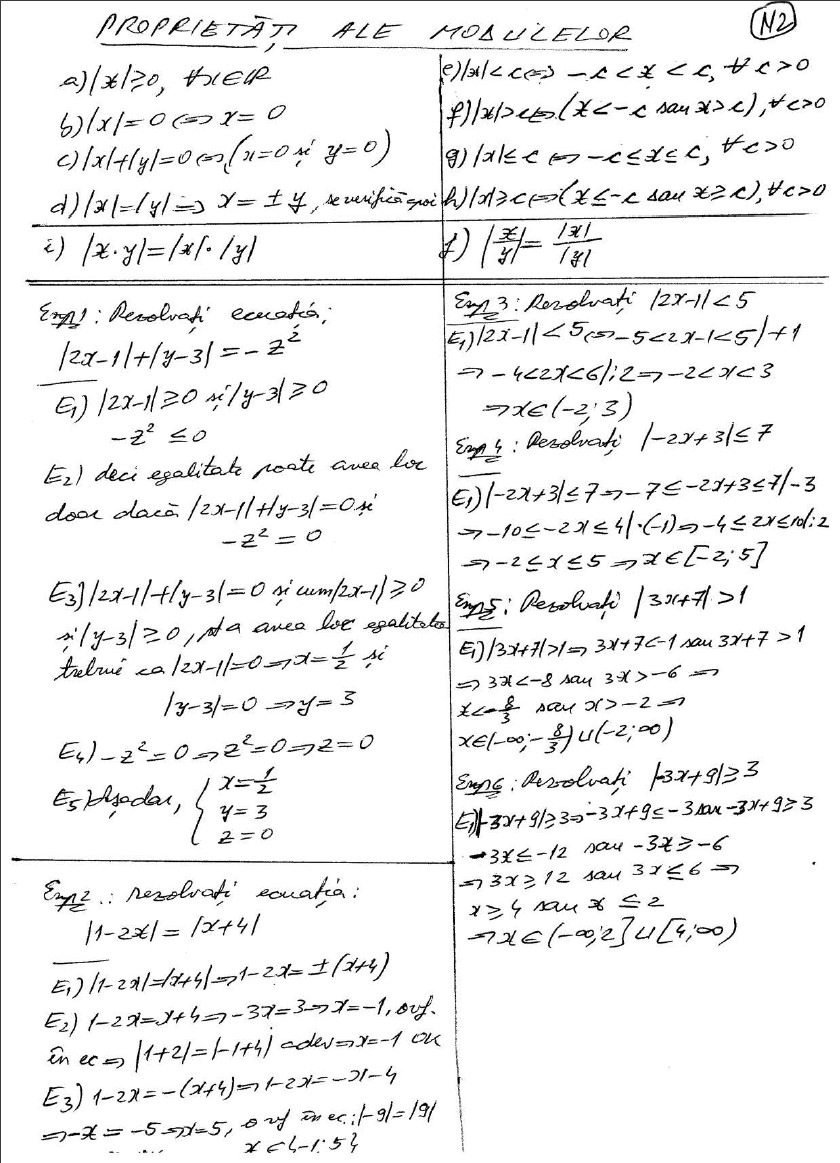 PROPRIETĂȚI ALE MODULELOR
N2
a) |x|≥0, ∀x∈R
b) |x|=0 ⇔ x=0
c) |x|+|y|=0 ⇔ (x=0 și y=0)
d) |x|=|y| ⇒ x=±y, se verifică apoi
e) |x|<c ⇔ -c<x<c, ∀c>0
f) |x|>c ⇔ (x<-c sau x>c), ∀c>0
g) |x|≤c ⇔ -c≤x≤c, ∀c>0
h) |x|≥c ⇔ (x≤-c sau x≥c), ∀c>0
i) |x·y|=|x|·|y|
j) |x/y| = |x|/|y|
Exp1: Rezolvați ecuația:
|2x-1|+|y-3|=-z²
E₁) |2x-1|≥0 și |y-3|≥0
-z²≤0
E₂) deci egalitate poate avea loc
doar dacă |2x-1|+|y-3|=0 și
-z²=0
E₃) |2x-1|+|y-3|=0 și cum |2x-1|≥0
și |y-3|≥0, pt a avea loc egalitatea
trebuie ca |2x-1|=0 ⇒ x=1/2 și
|y-3|=0 ⇒ y=3
E₄) -z²=0 ⇒ z²=0 ⇒ z=0
E₅) Așadar, { x=1/2
y=3
z=0
Exp2.: rezolvați ecuația:
|1-2x|=|x+4|
E₁) |1-2x|=|x+4| ⇒ 1-2x=±(x+4)
E₂) 1-2x=x+4 ⇒ -3x=3 ⇒ x=-1,
în ec ⇒ |1+2|=|-1+4| adev ⇒ x=-1 OK
E₃) 1-2x=-(x+4) ⇒ 1-2x=-x-4
⇒ -x=-5 ⇒ x=5, în ec.: |-9|=|9|
x∈{-1;5}
Exp 3: Rezolvați |2x-1|<5
E₁) |2x-1|<5 ⇔ -5<2x-1<5 |+1
⇒ -4<2x<6 |:2 ⇒ -2<x<3
⇒ x∈(-2;3)
Exp 4: Rezolvați |-2x+3|≤7
E₁) |-2x+3|≤7 ⇒ -7≤-2x+3≤7 |-3
⇒ -10≤-2x≤4 |·(-1) ⇒ -4≤2x≤10 |:2
⇒ -2≤x≤5 ⇒ x∈[-2;5]
Exp5: Rezolvați |3x+7|>1
E₁) |3x+7|>1 ⇒ 3x+7<-1 sau 3x+7>1
⇒ 3x<-8 sau 3x>-6 ⇒
x<-8/3 sau x>-2 ⇒
x∈(-∞;-8/3)∪(-2;∞)
Exp6: Rezolvați |-3x+9|≥3
E₁) |-3x+9|≥3 ⇒ -3x+9≤-3 sau -3x+9≥3
-3x≤-12 sau -3x≥-6
⇒ 3x≥12 sau 3x≤6 ⇒
x≥4 sau x≤2
⇒ x∈(-∞;2]∪[4;∞)